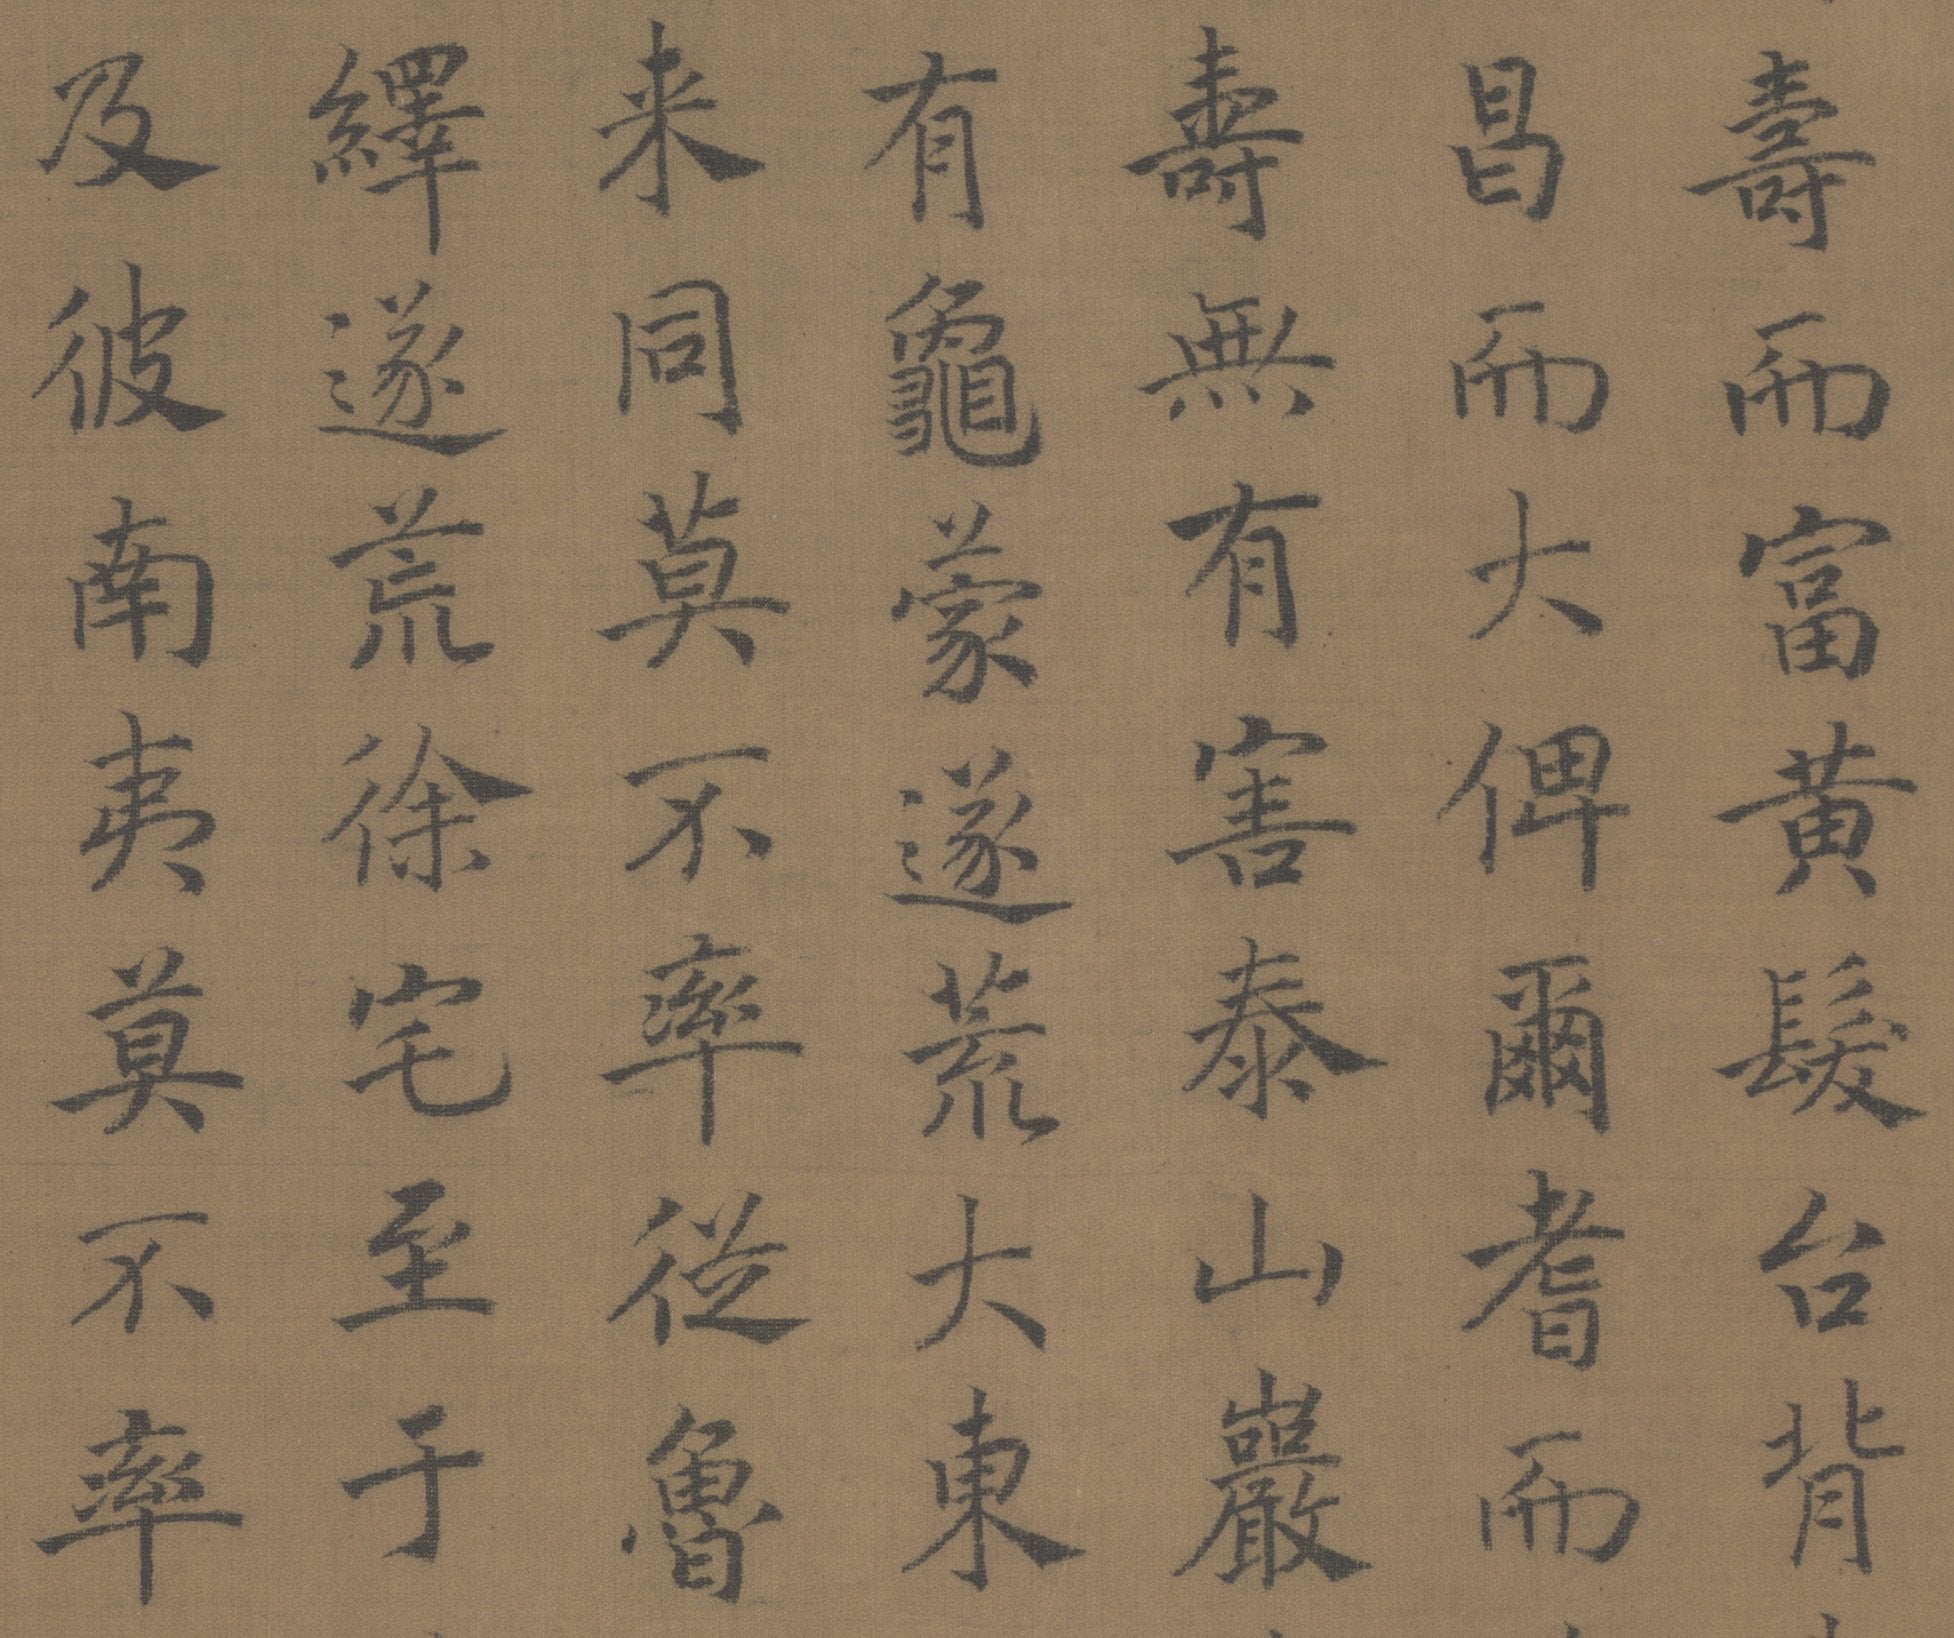 壽而富黃髮台背
昌而大俾爾耆而
壽無有害泰山巖
有龜蒙遂荒大東
来同莫不率從魯
繹遂荒徐宅至于
及彼南夷莫不率